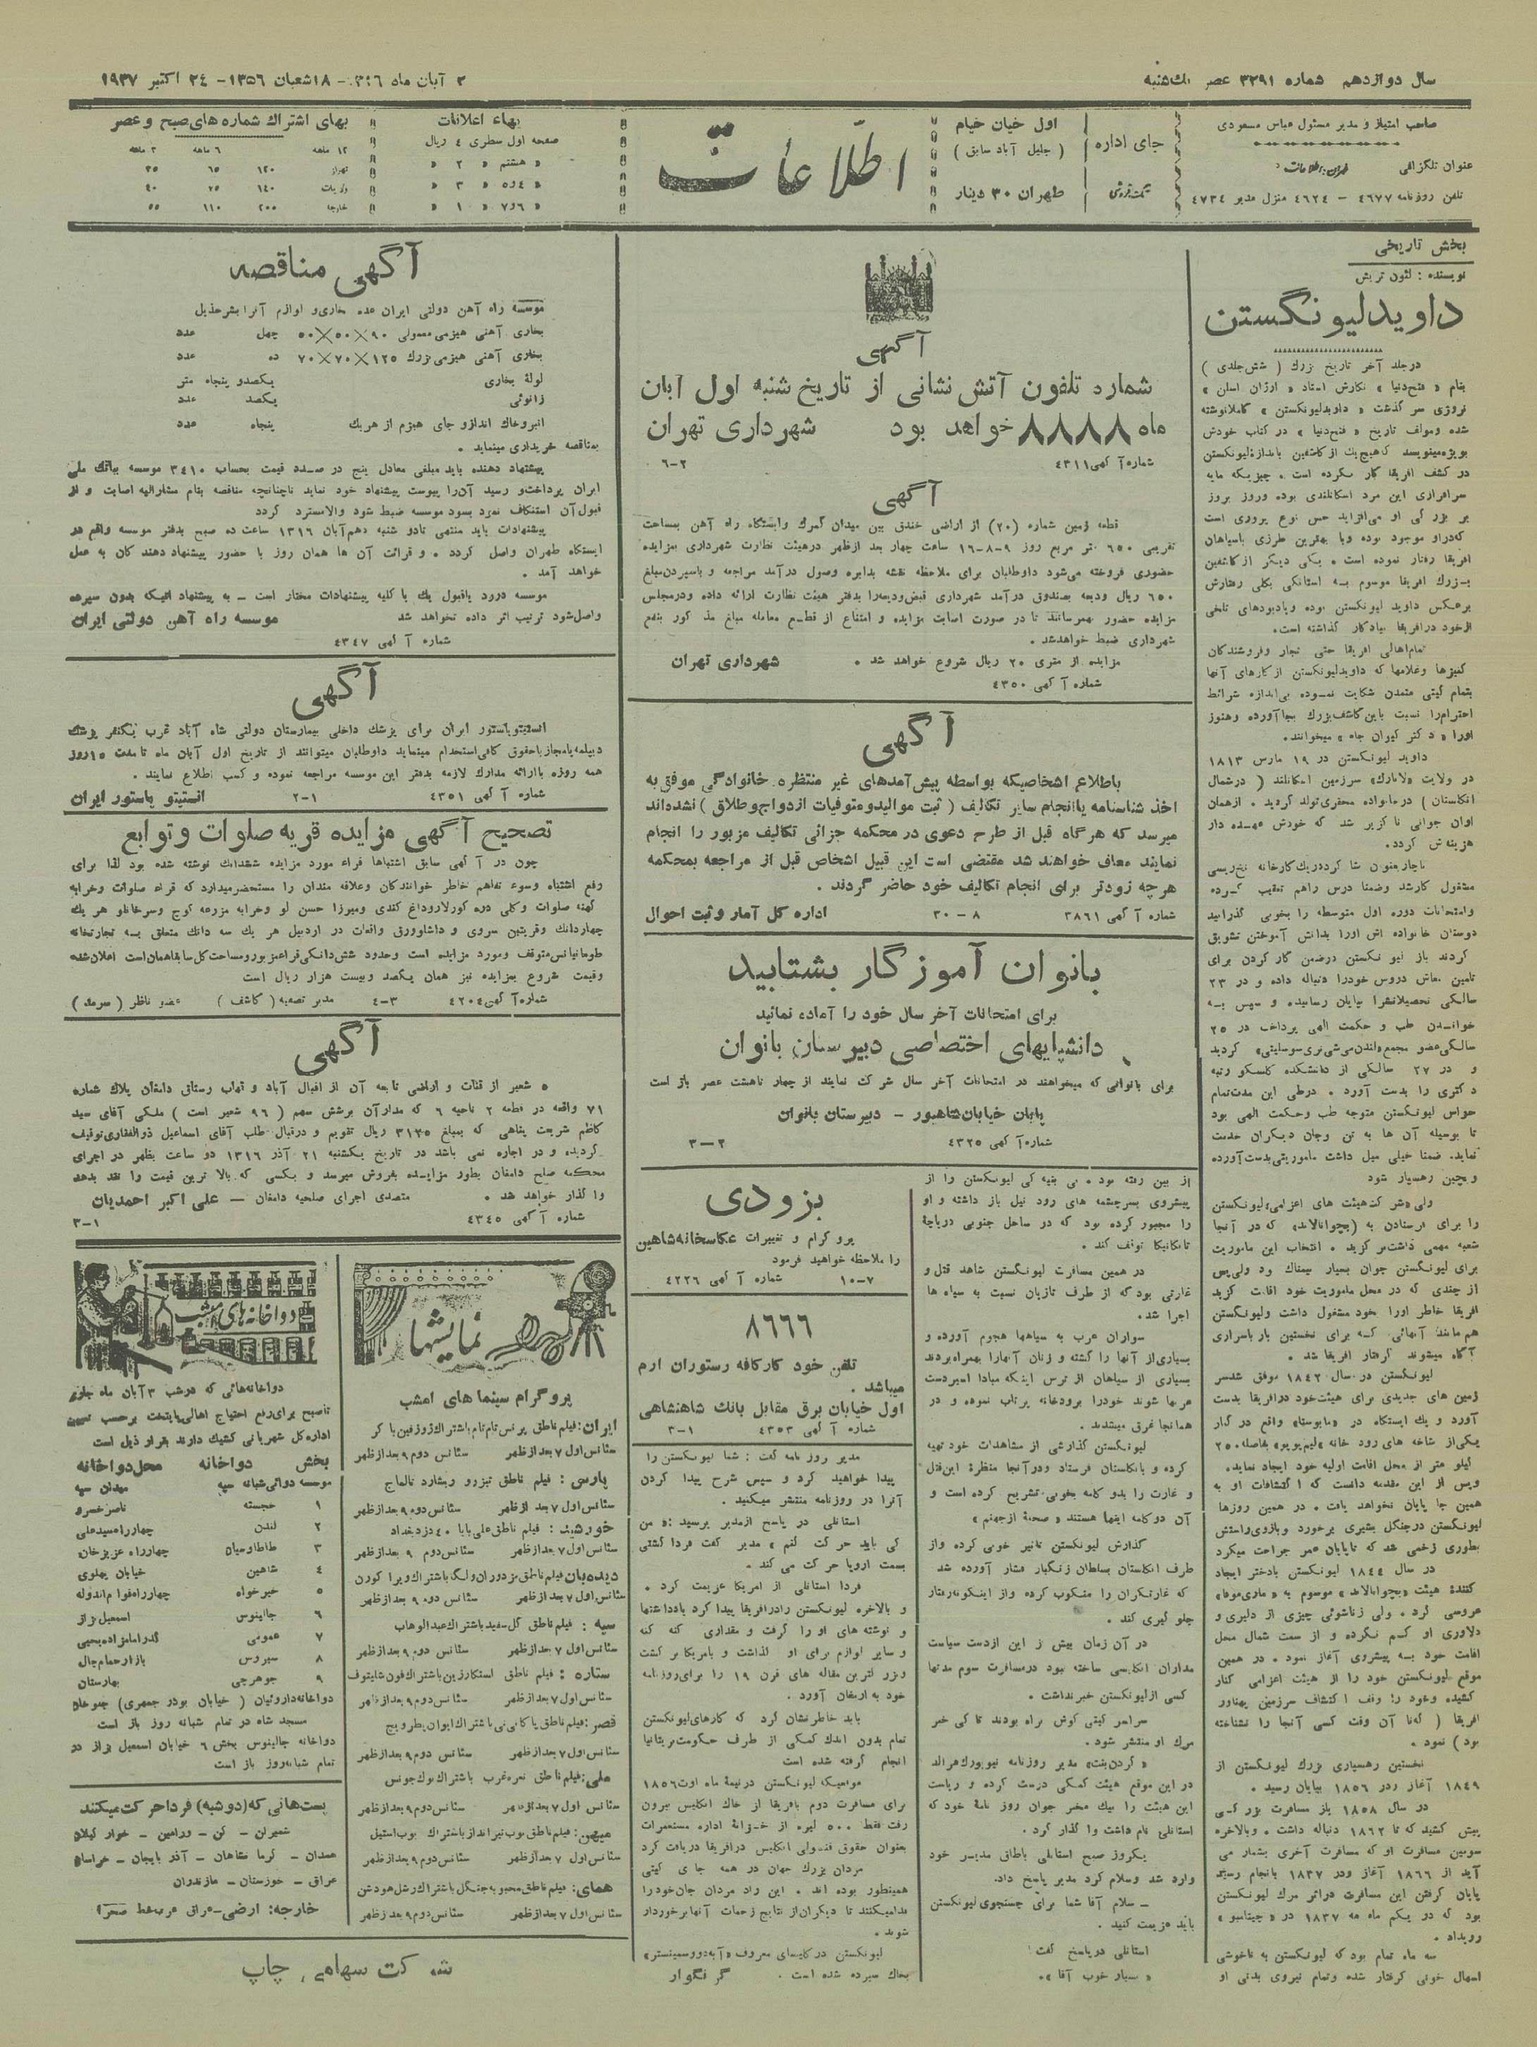 سال دوازدهم شماره ۳۲۹۱ عصر یکشنبه
۲ آبان ماه ۱۳۱۶ - ۱۸ شعبان ۱۳۵۶ - ۲۴ اکتبر ۱۹۳۷
صاحب امتیاز و مدیر مسئول عباس مسعودی
عنوان تلگرافی طهران: اطلاعات
تلفن روزنامه ۴۶۷۷ - ۴۶۲۴ منزل مدیر ۴۷۳۴
جای اداره
اول خیابان خیام
( جلیل آباد سابق )
تکفروشی
طهران ۳۰ دینار
اطلاعات
بهاء اعلانات
صفحه اول سطری ۴ ریال
« هشتم « ۲ «
« ۴و۵ « ۳ «
« ۶و۷ « ۱ «
بهای اشتراك شماره های صبح و عصر
۱۲ ماهه ۶ ماهه ۳ ماهه
تهران ۱۲۰ ۶۵ ۳۵
ولایات ۱۴۰ ۷۵ ۴۰
خارجه ۲۰۰ ۱۱۰ ۵۵
بخش تاریخی
نویسنده : لئون تریش
داوید لیونگستن
درجلد آخر تاریخ بزرك ( شش جلدی )
بنام « فتح دنیا » نگارش استاد « ارژان اسلن »
نروژی سر گذشت « داوید لیونگستن » کاملا نوشته
شده ومولف تاریخ « فتح دنیا » در کتاب خودش
در کشف افریقا کار نکرده است . چیزیکه مایه
سرافرازی این مرد اسکاتلندی بوده وروز بروز
بر بزرگی او می‌افزاید حس نوع پروری است
که در او موجود بوده وبا بهترین طرزی باسیاهان
افریقا رفتار نموده است . یکی دیگر از کاشفین
بزرك افریقا موسوم به استانلی بکلی رفتارش
برعکس داوید لیونگستن بوده ویادبودهای تلخی
ازخود درافریقا بیادگار گذاشته است.
تمام اهالی افریقا حتی تجار وفروشندگان
کنیزها وغلامها که داوید لیونگستن از کارهای آنها
بتمام گیتی متمدن شکایت نموده بی‌اندازه شرائط
احترام را نسبت باین کاشف بزرك بجا آورده وهنوز
اورا « دکتر کیوان جاه » میخوانند.
داوید لیونگستن در ۱۹ مارس ۱۸۱۳
در ولایت «لانارك» سرزمین اسکاتلند ( درشمال
انگلستان ) درخانواده محقری تولد گردید . ازهمان
اوان جوانی ناگزیر شد که خودش عهده دار
هزینه‌ش گردد.
مشغول کار شد وضمنا درس راهم تعقیب کرده
وامتحانات دوره اول متوسطه را بخوبی گذرانید
دوستان خانواده اش اورا بدانش آموختن تشویق
کردند باز لیونگستن درضمن کار کردن برای
تامین معاش دروس خودرا دنباله داده و در ۲۳
سالگی تحصیلاتش را بپایان رسانیده و سپس به
خواندن طب و حکمت الهی پرداخت در ۲۵
سالگی عضو مجمع «لندن می‌شی‌نری سوسایتی» گردید
و در ۲۷ سالگی از دانشکده گلاسکو رتبه
دکتری را بدست آورد . درطی این مدت تمام
حواس لیونگستن متوجه طب وحکمت الهی بود
تا بوسیله آن ها به تن وجان دیگران خدمت
نماید. ضمنا خیلی میل داشت ماموریتی بدست آورده
و بچین رهسپار شود
را برای فرستادن به (بچوانالاند» که در آنجا
شعبه مهمی داشت برگزید . انتخاب این ماموریت
برای لیونگستن جوان بسیار بیمناك بود ولی پس
از چندی که در محل ماموریت خود اقامت گزید
افریقا خاطر اورا خود مشغول داشت ولیونگستن
هم مانند آنهائی که برای نخستین بار باسراری
آگاه میشوند گرفتار افریقا شد .
لیونگستن در سال ۱۸۴۲ موفق شد سر
زمین های جدیدی برای هیئت خود درافریقا بدست
آورد و یك ایستگاه در «مابوستا» واقع در کنار
کیلو متر از محل اقامت اولیه خود ایجاد نماید.
وپس از این مقدمه دانست که اکتشافات او به
همین جا پایان نخواهد یافت . در همین روزها
لیونگستن درجنگل بشیری برخورد و بازوی راستش
بطوری زخمی شد که تاپایان عمر جراحت میکرد
در سال ۱۸۴۴ لیونگستن بادختر ایجاد
کنندهٔ هیئت «بچوانالاند» موسوم به «ماری موفا»
عروسی کرد . ولی زناشوئی چیزی از دلیری و
دلاوری او کم نکرده و از سمت شمال محل
اقامت خود به پیشروی آغاز نمود . در همین
موقع لیونگستن خود را از هیئت اعزامی کنار
کشیده وخود را وقف اکتشاف سرزمین پهناور
افریقا ( که تا آن وقت کسی آنجا را نشناخته
بود ) نمود .
نخستین رهسپاری بزرك لیونگستن از
۱۸۴۹ آغاز ودر ۱۸۵۶ بپایان رسید .
در سال ۱۸۵۸ باز مسافرت بزرگی
پیش کشید که تا ۱۸۶۲ دنباله داشت . وبالاخره
سومین مسافرت او که مسافرت آخری بشمار می
آید از ۱۸۶۶ آغاز ودر ۱۸۳۷ بانجام رسید
پایان گرفتن این مسافرت دراثر مرك لیونگستن
بود که در یکم ماه مه ۱۸۳۷ در «چیتامبو»
رویداد .
سه ماه تمام بود که لیونگستن به ناخوشی
اسهال خونی گرفتار شده وتمام نیروی بدنی او
آگهی
شماره تلفون آتش نشانی از تاریخ شنبه اول آبان
ماه ۸۸۸۸ خواهد بود شهرداری تهران
شماره آگهی ۴۳۱۱ ۲-۶
آگهی
قطعه زمین شماره (۲۰) از اراضی خندق بین میدان گمرك وایستگاه راه آهن بمساحت
تقریبی ۶۵۰ متر مربع روز ۹-۸-۱۶ ساعت چهار بعد ازظهر درهیئت نظارت شهرداری بمزایده
حضوری فروخته می‌شود داوطلبان برای ملاحظه نقشه بدایره وصول درآمد مراجعه و باسپردن مبلغ
۶۵۰ ریال ودیعه بصندوق درآمد شهرداری قبض ودیعه را بدفتر هیئت نظارت ارائه داده ودرمجلس
مزایده حضور بهمرسانند تا در صورت اصابت مزایده و امتناع از قطع معامله مبلغ مذکور بنفع
شهرداری ضبط خواهد شد.
مزایده از متری ۲۰ ریال شروع خواهد شد . شهرداری تهران
شماره آگهی ۴۳۵۰
آگهی
باطلاع اشخاصیکه بواسطه پیش آمدهای غیر منتظره خانوادگی موفق به
اخذ شناسنامه یا انجام سایر تکالیف ( ثبت موالید و متوفیات ازدواج و طلاق ) نشده‌اند
میرسد که هرگاه قبل از طرح دعوی در محکمه جزائی تکالیف مزبور را انجام
نمایند معاف خواهند شد مقتضی است این قبیل اشخاص قبل از مراجعه بمحکمه
هرچه زودتر برای انجام تکالیف خود حاضر گردند .
شماره آگهی ۳۸۶۱ ۸ - ۳۰ اداره کل آمار وثبت احوال
بانوان آموزگار بشتابید
برای امتحانات آخر سال خود را آماده نمائید
دانشپایهای اختصاصی دبیرستان بانوان
برای بانوانی که میخواهند در امتحانات آخر سال شرکت نمایند از چهار تا هشت عصر باز است
پایان خیابان شاهپور - دبیرستان بانوان
شماره آگهی ۴۳۲۵ ۲-۳
از بین رفته بود . می بقیه که لیونگستن را از
پیشروی بسرچشمه های رود نیل باز داشته و او
را مجبور کرده بود که در ساحل جنوبی دریاچهٔ
تانگانیکا توقف کند .
در همین مسافرت لیونگستن شاهد قتل و
غارتی بود که از طرف تازیان نسبت به سیاه ها
اجرا شد.
سواران عرب به سیاهها هجوم آورده و
بسیاری از آنها را کشته و زنان آنهارا بهمراه بردند
بسیاری از سیاهان از ترس اینکه مبادا اسیر دست
عربها شوند خودرا برودخانه پرتاب نموده و در
همانجا غرق میشدند.
لیونگستن گذارشی از مشاهدات خود تهیه
کرده و بانگلستان فرستاد ودرآنجا منظرهٔ این قتل
و غارت را بدو کلمه بخوبی تشریح کرده است و
آن دو کلمه اینها هستند « صحنهٔ ازجهنم »
گذارش لیونگستن تاثیر خوبی کرده واز
طرف انگلستان بسلطان زنگبار فشار آورده شد
که غارتگران را منکوب کرده واز اینگونه رفتار
جلو گیری کند .
در آن زمان بیش از این ازدست سیاست
مداران انگلیسی ساخته نبود درمسافرت سوم مدتها
کسی ازلیونگستن خبر نداشت .
سراسر گیتی گوش براه بودند تا کی خبر
مرك او منتشر شود .
« گردن بنت» مدیر روزنامه نیویورك هرالد
در این موقع هیئت کمکی درست کرده و ریاست
این هیئت را بیك مخبر جوان روز نامهٔ خود که
استانلی نام داشت وا گذار کرد.
یکروز صبح استانلی باطاق مدیر خود
وارد شد وسلام کرد مدیر پاسخ داد.
- سلام آقا شما برای جستجوی لیونگستن
باید عزیمت کنید .
استانلی درپاسخ گفت:
« بسیار خوب آقا ».
بزودی
پروگرام و تغییرات عکاسخانه شاهین
را ملاحظه خواهید فرمود
۷-۱۰ شماره آگهی ۴۲۲۶
۸۶۶۶
تلفن خود کار کافه رستوران ارم
میباشد .
اول خیابان برق مقابل بانك شاهنشاهی
شماره آگهی ۴۳۵۳ ۱-۳
مدیر روز نامه گفت : شما لیونگستن را
پیدا خواهید کرد و سپس شرح پیدا کردن
آنرا در روزنامه منتشر میکنید .
استانلی در پاسخ ازمدیر پرسید : « من
کی باید حرکت کنم » مدیر گفت فردا کشتی
بسمت اروپا حرکت می کند .
فردا استانلی از امریکا عزیمت کرد .
و بالاخره لیونگستن رادرافریقا پیدا کرد یادداشتها
و نوشته های او را گرفت و مقداری گنه گنه
و سایر لوازم برای او گذاشت و بامریکا بر گشت
وبزرگترین مقاله های قرن ۱۹ را برای روزنامه
خود به ارمغان آورد .
باید خاطرنشان کرد که کارهای لیونگستن
تمام بدون اندك کمکی از طرف حکومت بریتانیا
انجام گرفته شده است
موقعیکه لیونگستن درنیمهٔ ماه اوت ۱۸۵۶
برای مسافرت دوم بافریقا از خاك انگلیس بیرون
رفت فقط ۵۰۰ لیره از خزانهٔ اداره مستعمرات
بعنوان حقوق قنسولی انگلیس درافریقا دریافت کرد
مردان بزرك جهان در همه جای گیتی
همینطور بوده اند . این راد مردان جان خودرا
فدا میکنند تا دیگران از نتایج زحمات آنها برخوردار
شوند .
لیونگستن در کلیسای معروف «آبه دووسمینستر»
بخاك سپرده شده است . گرنگوار
آگهی مناقصه
موسسه راه آهن دولتی ایران عده بخاری و لوازم آنرا بشرح ذیل
بخاری آهنی هیزمی معمولی ۹۰×۵۰×۵۰ چهل عدد
بخاری آهنی هیزمی بزرك ۱۲۵×۷۰×۷۰ ده عدد
لولهٔ بخاری یکصدو پنجاه متر
زانوئی یکصد عدد
انبرو خاك اندازو جای هیزم از هریك پنجاه عدد
بمناقصه خریداری مینماید .
پیشنهاد دهنده باید مبلغی معادل پنج در صد قیمت بحساب ۳۴۱۰ موسسه ببانك ملی
ایران پرداخت و رسید آن را پیوست پیشنهاد خود نماید تاچنانچه مناقصه بنام مشارالیه اصابت و از
قبول آن استنکاف نمود بسود موسسه ضبط شود والا مسترد گردد
پیشنهادات باید منتهی تا دو شنبه دهم آبان ۱۳۱۶ ساعت ده صبح بدفتر موسسه واقع در
ایستگاه طهران واصل گردد . و قرائت آن ها همان روز با حضور پیشنهاد دهندگان به عمل
خواهد آمد .
موسسه دررد یاقبول یك یا کلیه پیشنهادات مختار است - به پیشنهاداتیکه بدون سپرده
واصل شود ترتیب اثر داده نخواهد شد موسسه راه آهن دولتی ایران
شماره آگهی ۴۳۴۷
آگهی
انستیتو پاستور ایران برای پزشك داخلی بیمارستان دولتی شاه آباد غرب یکنفر پزشك
دیپلمه یا مجاز با حقوق کافی استخدام مینماید داوطلبان میتوانند از تاریخ اول آبان ماه تا مدت ۱۵ روز
همه روزه با ارائه مدارك لازمه بدفتر این موسسه مراجعه نموده و کسب اطلاع نمایند .
شماره آگهی ۴۳۵۱ ۱-۲ انستیتو پاستور ایران
تصحیح آگهی مزایده قریه صلوات و توابع
چون در آگهی سابق اشتباها قراء مورد مزایده ششدانك نوشته شده بود لذا برای
رفع اشتباه وسوء تفاهم خاطر خوانندگان وعلاقه مندان را مستحضر میدارد که قراء صلوات وخرابه
کهنه صلوات وکلی دره کورلار وداغ کندی ومیرزا حسن لو وخرابه مزرعه کوج وسرخانلو هر یك
چهاردانك وقریتین سروی و داشلوورق واقعات در اردبیل هر یك سه دانك متعلق به تجارتخانه
طومانیانس متوقف ومورد مزایده است وحدود شش‌دانگی قراء مزبور ومساحت کل سابقا همان است اعلان شده
وقیمت شروع بمزایده نیز همان یکصد وبیست هزار ریال است
شماره آگهی ۴۲۰۴ ۳-۴ مدیر تصفیه ( کاشف ) عضو ناظر ( سرمد )
آگهی
۵ شعیر از قنات و اراضی تابعه آن از اقبال آباد و تهاب رستاق دامغان پلاك شماره
۷۱ واقعه در قطعه ۲ ناحیه ۶ که مدار آن برشش سهم ( ۹۶ شعیر است ) ملکی آقای سید
کاظم شریعت پناهی که بمبلغ ۳۱۲۵ ریال تقویم و درقبال طلب آقای اسماعیل ذوالفقاری توقیف
گردیده و در اجاره نمی باشد در تاریخ یکشنبه ۲۱ آذر ۱۳۱۶ دو ساعت بظهر در اجرای
محکمه صلح دامغان بطور مزایده بفروش میرسد و بکسی که بالا ترین قیمت را نقد بدهد
وا گذار خواهد شد . متصدی اجرای صلحیه دامغان - علی اکبر احمدیان
شماره آگهی ۴۳۴۵ ۱-۳
نمایشها
پروگرام سینماهای امشب
ایران: فیلم ناطق پرنس تام تام باشتراك ژوزفین باکر
سئانس اول ۷ بعد ازظهر سئانس دوم ۹ بعد ازظهر
پارس : فیلم ناطق تیزرو ریشارد تالماج
سئانس اول ۷ بعد ازظهر سئانس دوم ۹ بعد ازظهر
خورشید : فیلم ناطق علی بابا ۴۰ دزد بغداد
سئانس اول ۷ بعد ازظهر سئانس دوم ۹ بعد ازظهر
سئانس اول ۷ بعد ازظهر سئانس دوم ۹ بعد ازظهر
سپه : فیلم ناطق گل سفید باشتراك عبدالوهاب
سئانس اول ۷ بعد ازظهر سئانس دوم ۹ بعد ازظهر
ستاره : فیلم ناطق
سئانس اول ۷ بعد ازظهر سئانس دوم ۹ بعد ازظهر
سئانس اول ۷ بعد ازظهر سئانس دوم ۹ بعد ازظهر
ملی: فیلم ناطق نعره غرب باشتراك بوك جونس
سئانس اول ۷ بعد ازظهر سئانس دوم ۹ بعد ازظهر
میهن: فیلم ناطق بوب تیر انداز باشتراك بوب استیل
سئانس اول ۷ بعد ازظهر سئانس دوم ۹ بعد ازظهر
همای: فیلم ناطق محبوبه جنگل باشتراك رشل هودسن
سئانس اول ۷ بعد ازظهر سئانس دوم ۹ بعد ازظهر
دواخانه های امشب
دواخانه هائی که درشب ۳ آبان ماه جاری
تاصبح برای رفع احتیاج اهالی پایتخت برحسب تعیین
اداره کل شهربانی کشیك دارند بقرار ذیل است
بخش دواخانه محل دواخانه
موسسه دوائی شبانه سپه میدان سپه
۱ خجسته ناصر خسرو
۲ لندن چهارراه سید علی
۳ طاطاوسیان چهارراه عزیز خان
۴ شاهین خیابان پهلوی
۵ خیرخواه چهارراه قوام الدوله
۶ جالینوس اسمعیل بزاز
۷ عمومی گذر امامزاده یحیی
۸ سیروس بازار حمام چال
۹ جوهرچی بهارستان
دواخانه داروئیان ( خیابان بوذر جمهری ) جلوخان
مسجد شاه در تمام شبانه روز باز است
دواخانه جالینوس بخش ۶ خیابان اسمعیل بزاز در
تمام شبانه روز باز است
پست هائی که (دوشنبه) فردا حرکت میکنند
شمیران - کن - ورامین - خوار گیلان
همدان - کرمانشاهان - آذربایجان - خراسان
عراق - خوزستان - مازندران
خارجه: ارضی - عراق عرب خط صحرا
شرکت سهامی چاپ